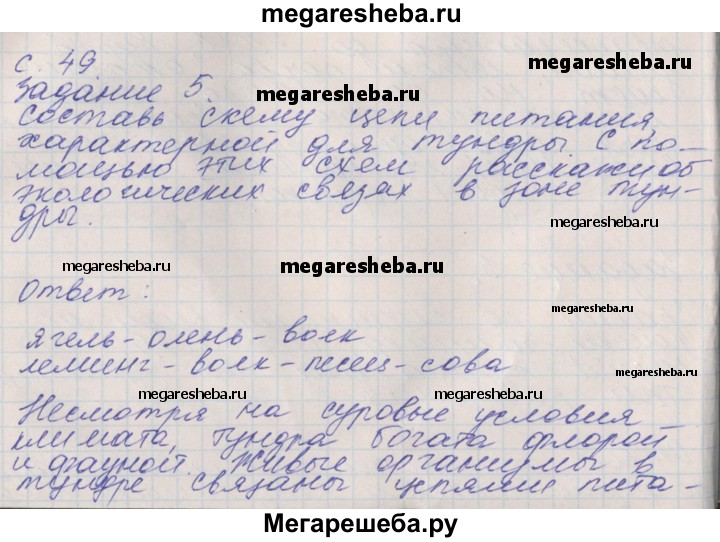 megaresheba.ru
с. 49
Задание 5.
megaresheba.ru
составь схему цепи питания
характерной для тундры С по-
мощью этих схем расскажи об
экологических связях в зоне тун-
дры.
megaresheba.ru
megaresheba.ru
megaresheba.ru
Ответ:
megaresheba.ru
ягель - олень - волк
megaresheba.ru
лемминг - волк - песец - сова
megaresheba.ru
megaresheba.ru
megaresheba.ru
Несмотря на суровые условия
климата, тундра богата флорой
и фауной. Живые организмы в
тундре связаны цепями пита-
Мегарешеба.ру